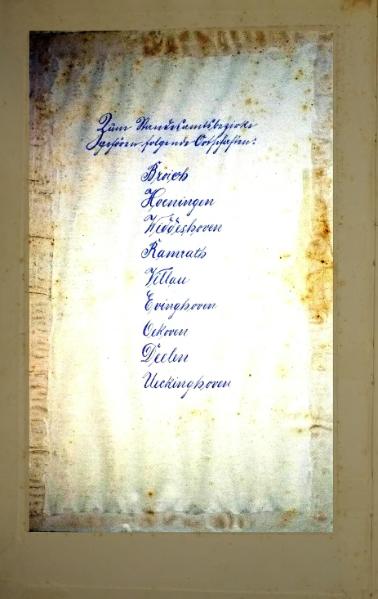 Zum Standesamtsbezirke
gehören folgende Ortschaften:
Broich
Hoeningen
Widdeshoven
Ramrath
Villau
Evinghoven
Oekoven
Deelen
Ueckinghoven